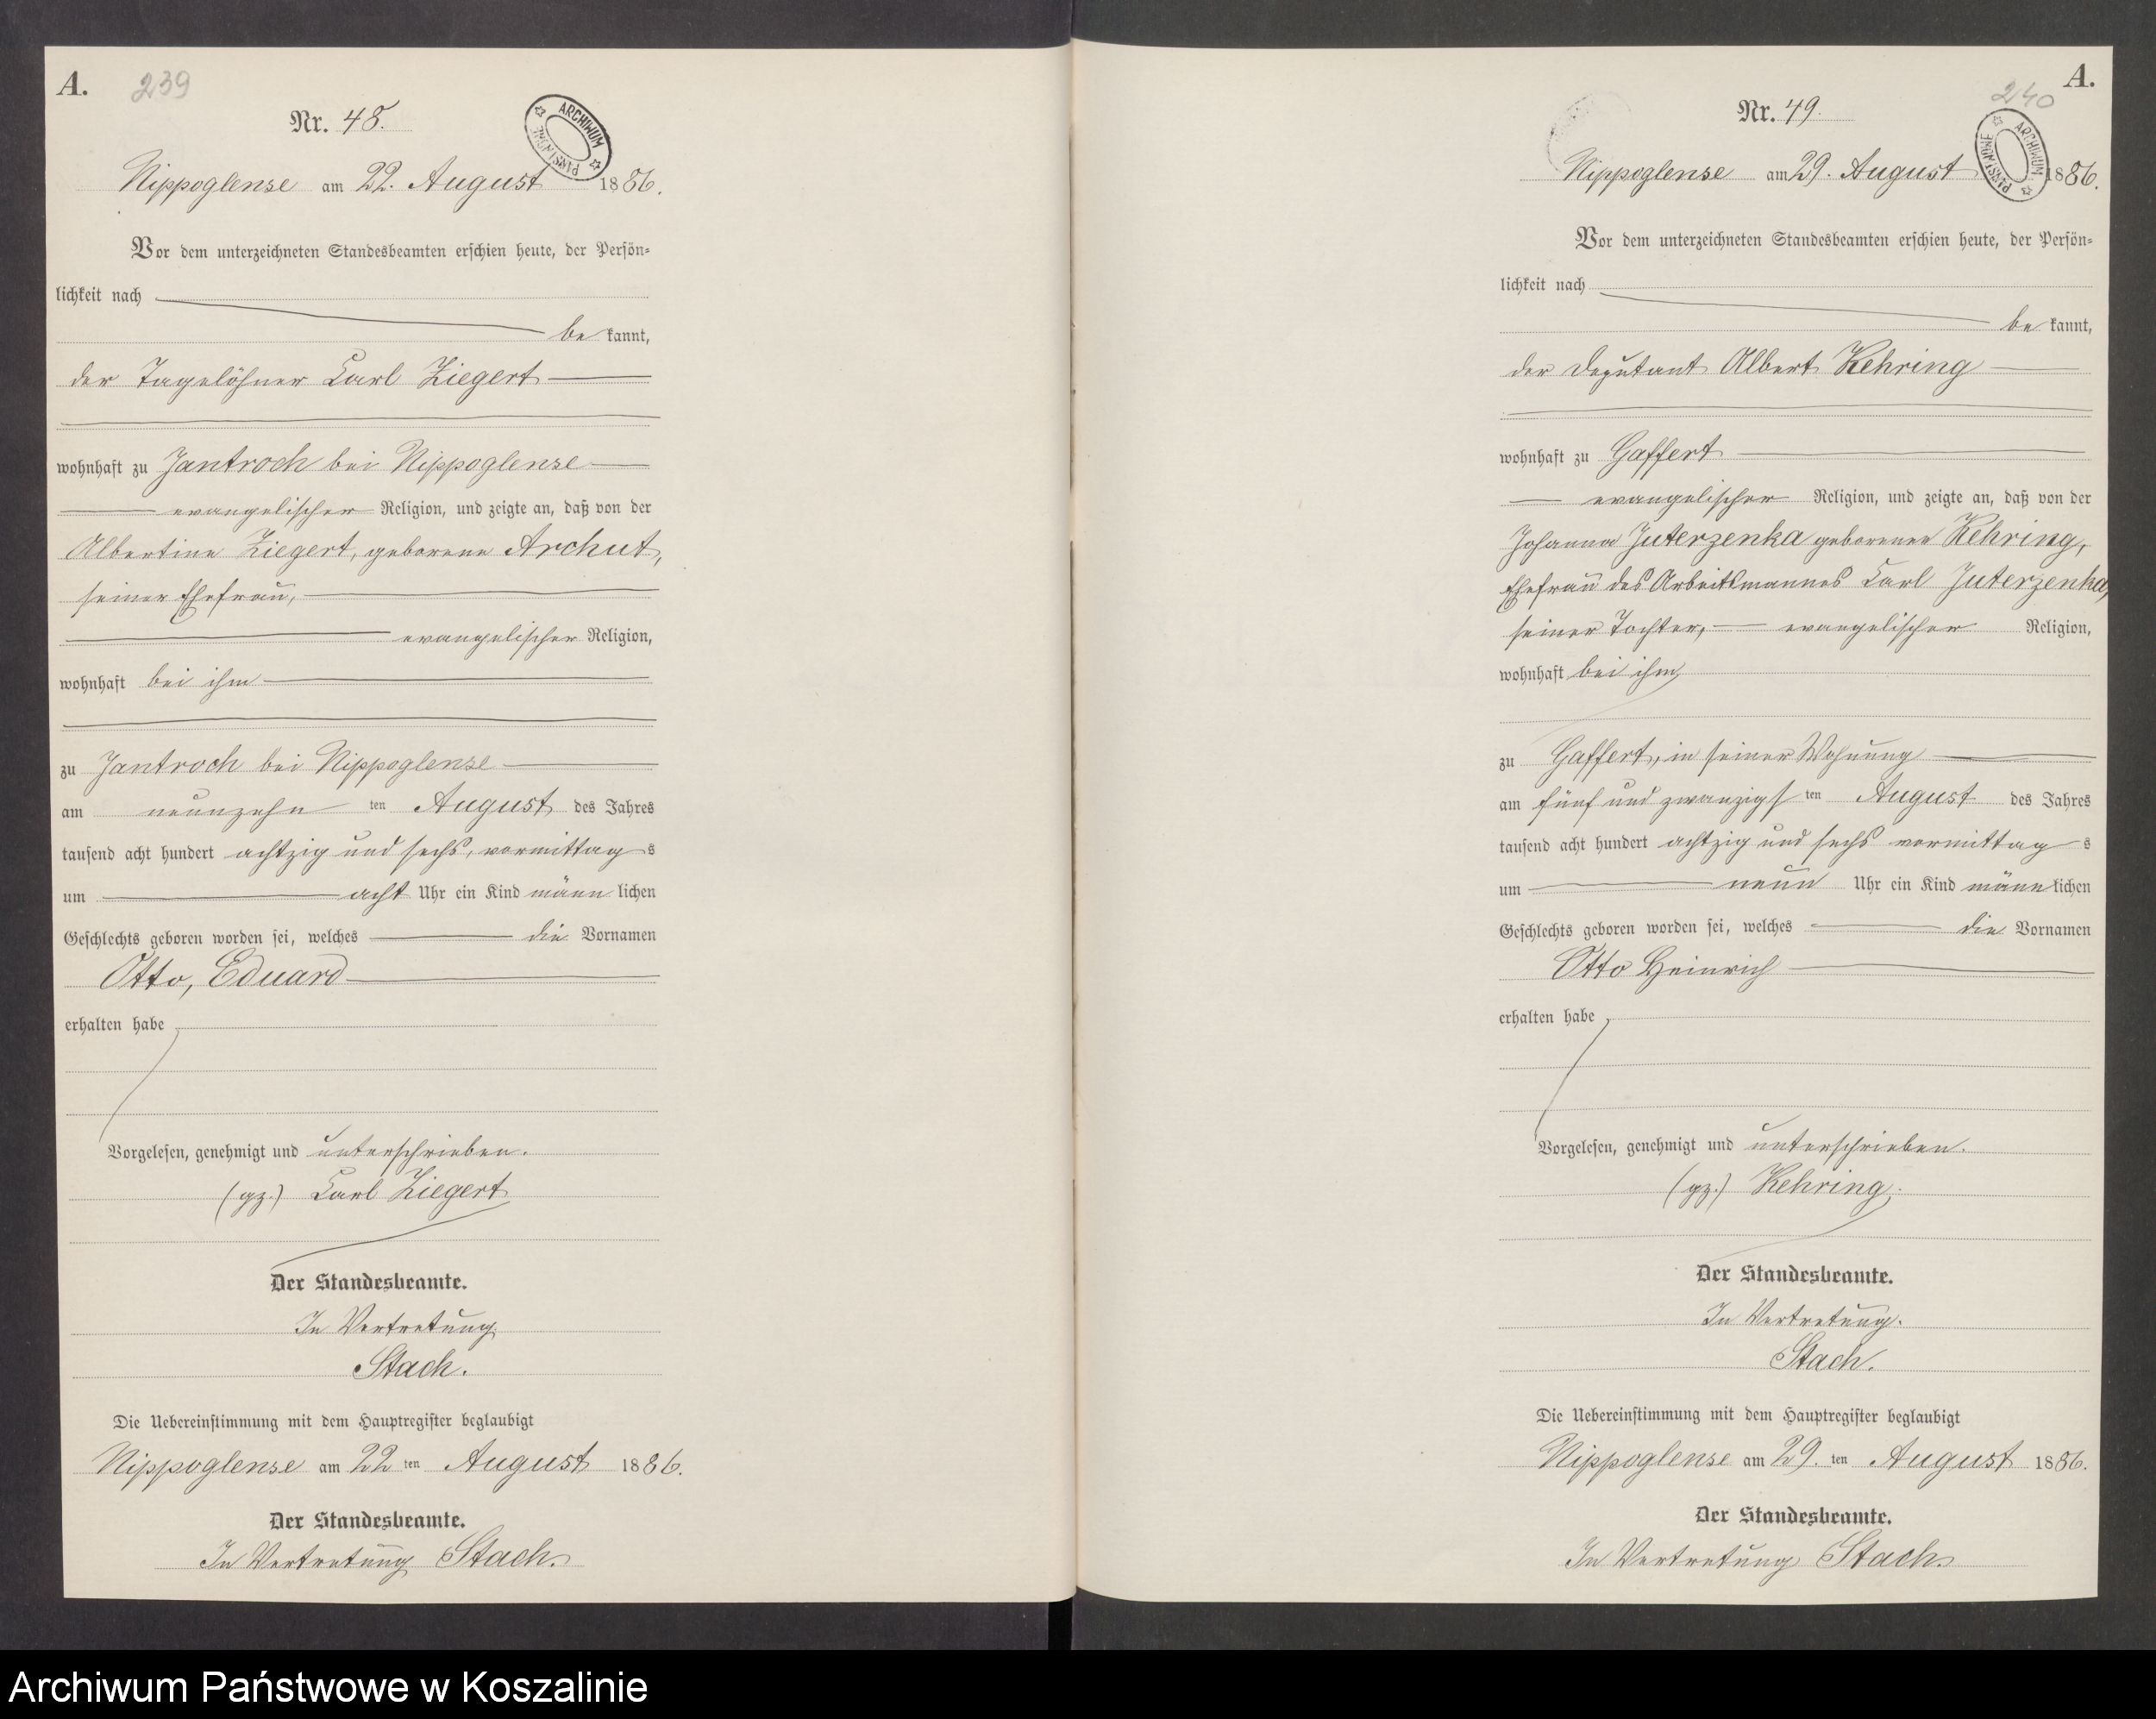 A.
239
Nr. 48.
ARCHIWUM PAŃSTWOWE
Nippoglense am 22. August 1886.
Vor dem unterzeichneten Standesbeamten erschien heute, der Persön-
lichkeit nach
be kannt,
der Tagelöhner Carl Ziegert
wohnhaft zu Jantroch bei Nippoglense
evangelischer Religion, und zeigte an, daß von der
Albertine Ziegert, geborene Archut,
seiner Ehefrau,
evangelischer Religion,
wohnhaft bei ihm
zu Jantroch bei Nippoglense
am neunzehn ten August des Jahres
tausend acht hundert achtzig und sechs, vormittag s
um acht Uhr ein Kind männ lichen
Geschlechts geboren worden sei, welches die Vornamen
Otto, Eduard
erhalten habe
Vorgelesen, genehmigt und unterschrieben.
(gz.) Carl Ziegert
Der Standesbeamte.
In Vertretung
Stach.
Die Uebereinstimmung mit dem Hauptregister beglaubigt
Nippoglense am 22 ten August 1886.
Der Standesbeamte.
In Vertretung Stach.
A.
240
Nr. 49.
ARCHIWUM PAŃSTWOWE
Nippoglense am 29. August 1886.
Vor dem unterzeichneten Standesbeamten erschien heute, der Persön-
lichkeit nach
be kannt,
der Deputant Albert Kehring
wohnhaft zu Gaffert
evangelischer Religion, und zeigte an, daß von der
Johanna Juterzenka geborenen Kehring,
Ehefrau des Arbeitsmannes Carl Juterzenka,
seiner Tochter, evangelischer Religion,
wohnhaft bei ihm,
zu Gaffert, in seiner Wohnung
am fünf und zwanzigs ten August des Jahres
tausend acht hundert achtzig und sechs vormittag s
um neun Uhr ein Kind männ lichen
Geschlechts geboren worden sei, welches die Vornamen
Otto Heinrich
erhalten habe
Vorgelesen, genehmigt und unterschrieben.
(gz.) Kehring.
Der Standesbeamte.
In Vertretung.
Stach.
Die Uebereinstimmung mit dem Hauptregister beglaubigt
Nippoglense am 29. ten August 1886.
Der Standesbeamte.
In Vertretung Stach.
Archiwum Państwowe w Koszalinie